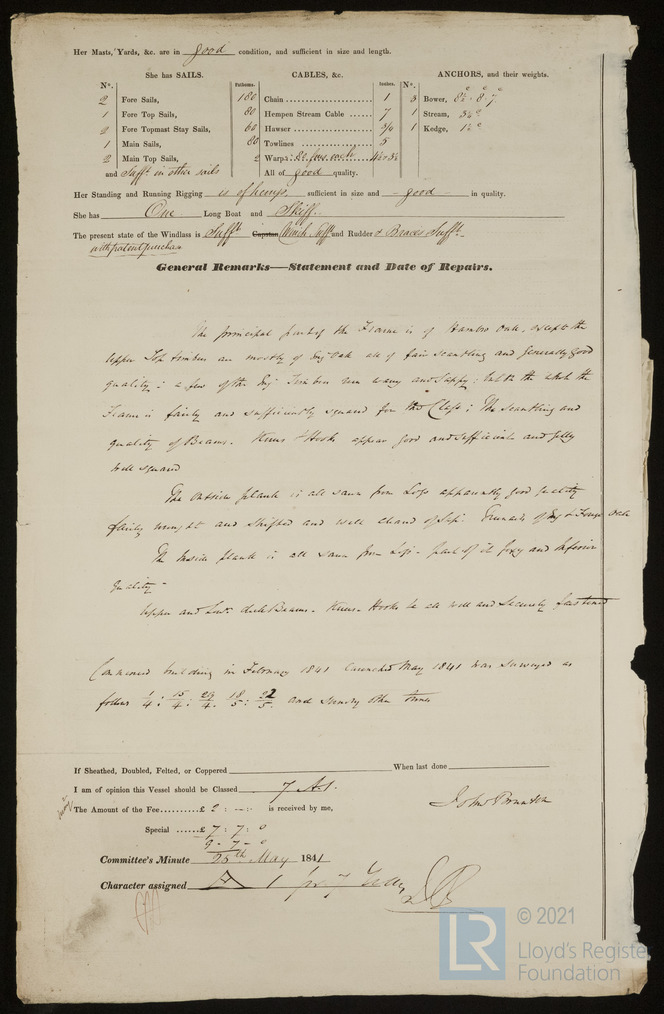 Her Masts, Yards, &c. are in good condition, and sufficient in size and length.
She has SAILS.
N°.
2 Fore Sails,
1 Fore Top Sails,
2 Fore Topmast Stay Sails,
1 Main Sails,
2 Main Top Sails,
and Sufft in other sails
CABLES, &c.
Fathoms. Inches.
180 Chain 1
80 Hempen Stream Cable 7
60 Hawser
80 Towlines 5
2 Warps
All of good quality.
ANCHORS, and their weights.
N°.
3 Bower,
1 Stream,
1 Kedge,
Her Standing and Running Rigging is of hemp, sufficient in size and good in quality.
She has One Long Boat and Skiff.
The present state of the Windlass is Sufft Capstan Winch Sufft and Rudder & Braces Sufft
with patent purchase
General Remarks—Statement and Date of Repairs.
The principal part of the Frame is of Hambro Oak, except the
Upper Top timbers are mostly of Eng Oak all of fair scantling and generally good
quality: a few of the Eng Timbers are wany and sappy: but on the whole the
Frame is fairly and sufficiently squared for the Class; The scantling and
quality of Beams. Knees & Hooks appear good and sufficient and
well squared
The outside plank is all sawn from Logs apparently good quality
fairly wrought and shifted and well cleared of Sap. Treenails of Eng & Oak
The Inside plank is all sawn from Logs - part of it foxy and Inferior
quality -
Upper and Lowr deck Beams. Knees. Hooks &c all well and securely fastened
Commenced building in February 1841 Launched May 1841 was surveyed as
follows 1/4: 15/4: 29/4. 18/5: 22/5. and sundry other times
If Sheathed, Doubled, Felted, or Coppered When last done
I am of opinion this Vessel should be Classed 7 A1.
The Amount of the Fee £ 2 : - : - is received by me,
John Brunton
Special £ 7 : 7 : 0
9 - 7 - 0
Committee's Minute 25th May 1841
Character assigned A 1 for 7 Years
LR
© 2021
Lloyd's Register
Foundation